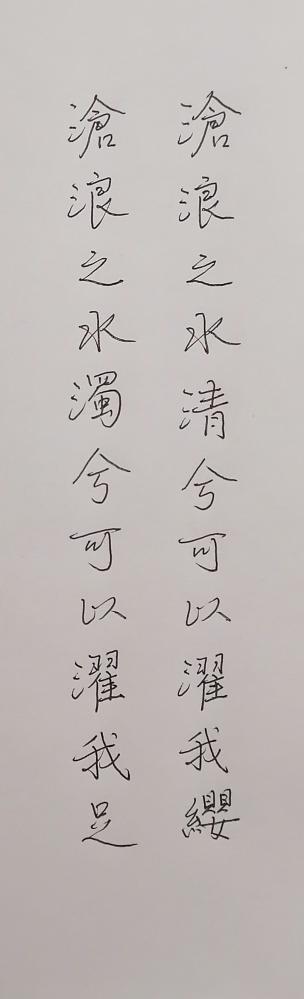 滄浪之水清兮可以濯我纓
滄浪之水濁兮可以濯我足